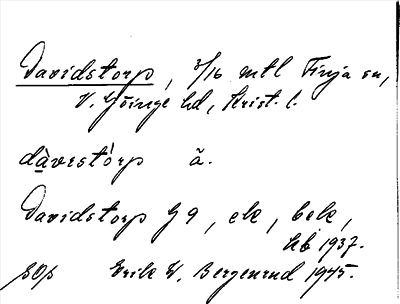 Davidstorp, 3/16 mtl Finja sn,
V. Göinge hd, Krist. l.
dàvrstórp ã.
Davidstorp G 9, ek, bebk,
Kb 1937.
sOp Erik W. Bergenrud 1945.